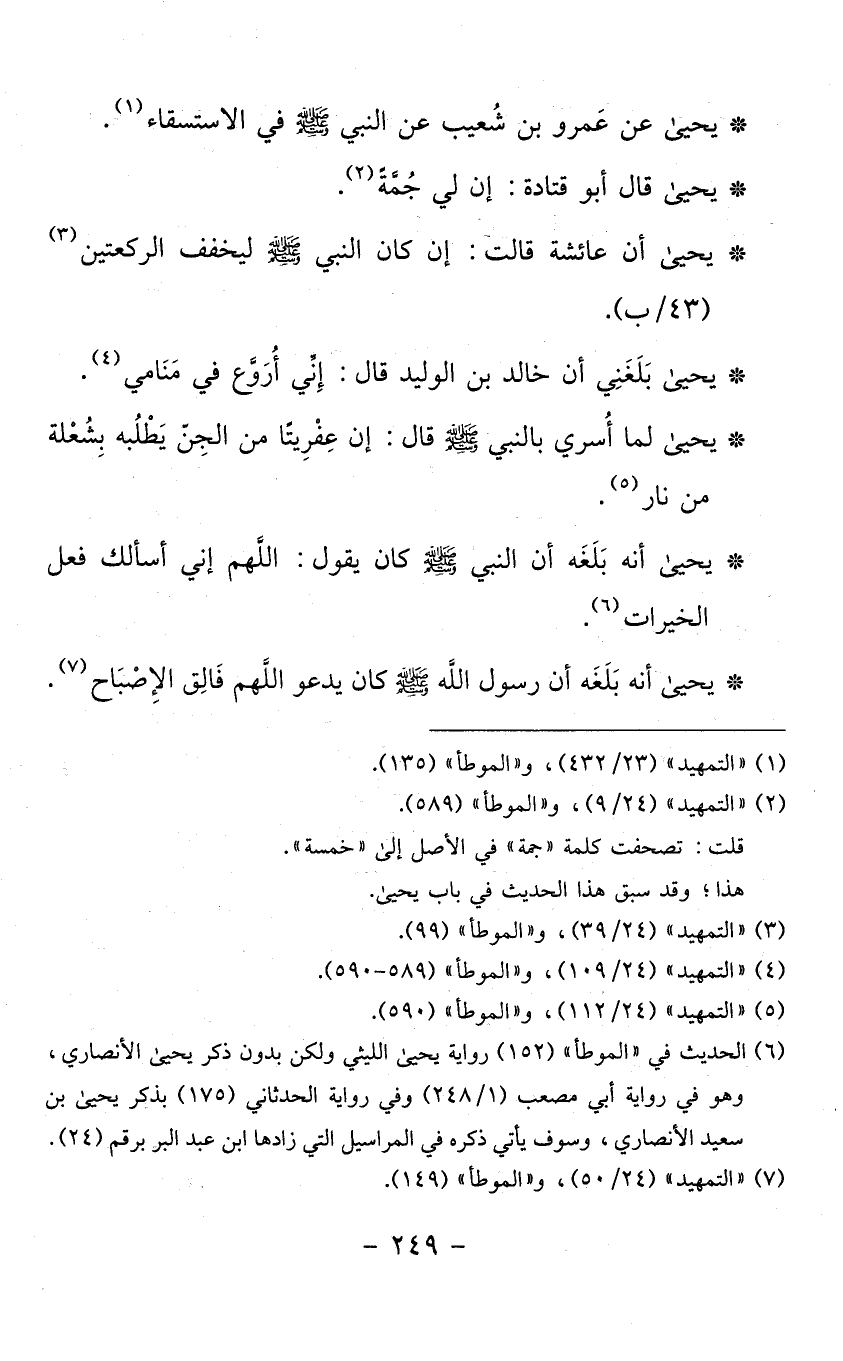 * يحيىٰ عن عَمرو بن شُعيب عن النبي ﷺ في الاستسقاء(١).
* يحيىٰ قال أبو قتادة : إن لي جُمَّةً(٢).
* يحيىٰ أن عائشة قالت : إن كان النبي ﷺ ليخفف الركعتين(٣)
(٤٣/ب).
* يحيىٰ بَلَغَنِي أن خالد بن الوليد قال : إِنِّي أُرَوَّع في مَنَامي(٤).
* يحيىٰ لما أُسري بالنبي ﷺ قال : إن عِفْرِيتًا من الجِنّ يَطْلُبه بِشُعْلة
من نار(٥).
* يحيىٰ أنه بَلَغَه أن النبي ﷺ كان يقول : اللَّهم إني أسألك فعل
الخيرات(٦).
* يحيىٰ أنه بَلَغَه أن رسول اللَّه ﷺ كان يدعو اللَّهم فَالِق الإِصْبَاح(٧).
(١) «التمهيد» (٢٣/ ٤٣٢) ، و«الموطأ» (١٣٥).
(٢) «التمهيد» (٢٤/ ٩) ، و«الموطأ» (٥٨٩).
قلت : تصحفت كلمة «جمة» في الأصل إلىٰ «خمسة».
هذا ؛ وقد سبق هذا الحديث في باب يحيىٰ.
(٣) «التمهيد» (٢٤/ ٣٩) ، و«الموطأ» (٩٩).
(٤) «التمهيد» (٢٤/ ١٠٩) ، و«الموطأ» (٥٨٩-٥٩٠).
(٥) «التمهيد» (٢٤/ ١١٢) ، و«الموطأ» (٥٩٠).
(٦) الحديث في «الموطأ» (١٥٢) رواية يحيىٰ الليثي ولكن بدون ذكر يحيىٰ الأنصاري ،
وهو في رواية أبي مصعب (١/ ٢٤٨) وفي رواية الحدثاني (١٧٥) بذكر يحيىٰ بن
سعيد الأنصاري ، وسوف يأتي ذكره في المراسيل التي زادها ابن عبد البر برقم (٢٤).
(٧) «التمهيد» (٢٤/ ٥٠) ، و«الموطأ» (١٤٩).
- ٢٤٩ -